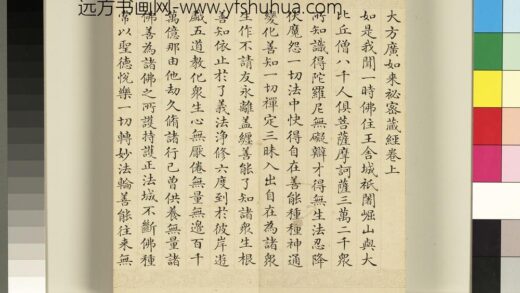 远方书画网-www.yfshuhua.com
大方廣如來祕密藏經卷上
如是我聞一時佛住王舍城祇闍崛山與大
比丘僧八千人俱菩薩摩訶薩三萬二千衆
所知識得陀羅尼無礙辯才得無生法忍降
伏魔怨一切法中快得自在善能種種神通
變化善知一切禪定三昧入出自在為諸衆
生作不請友永離盖纏善能了知諸衆生根
善知依止於了義法浄修六度到於彼岸遊
戲五道教化衆生心無厭倦無量無邊百千
萬億那由他劫久脩諸行已曾供養無量諸
佛善為諸佛之所護持護正法城不斷佛種
常以聖德悅樂一切轉妙法輪善能往來無